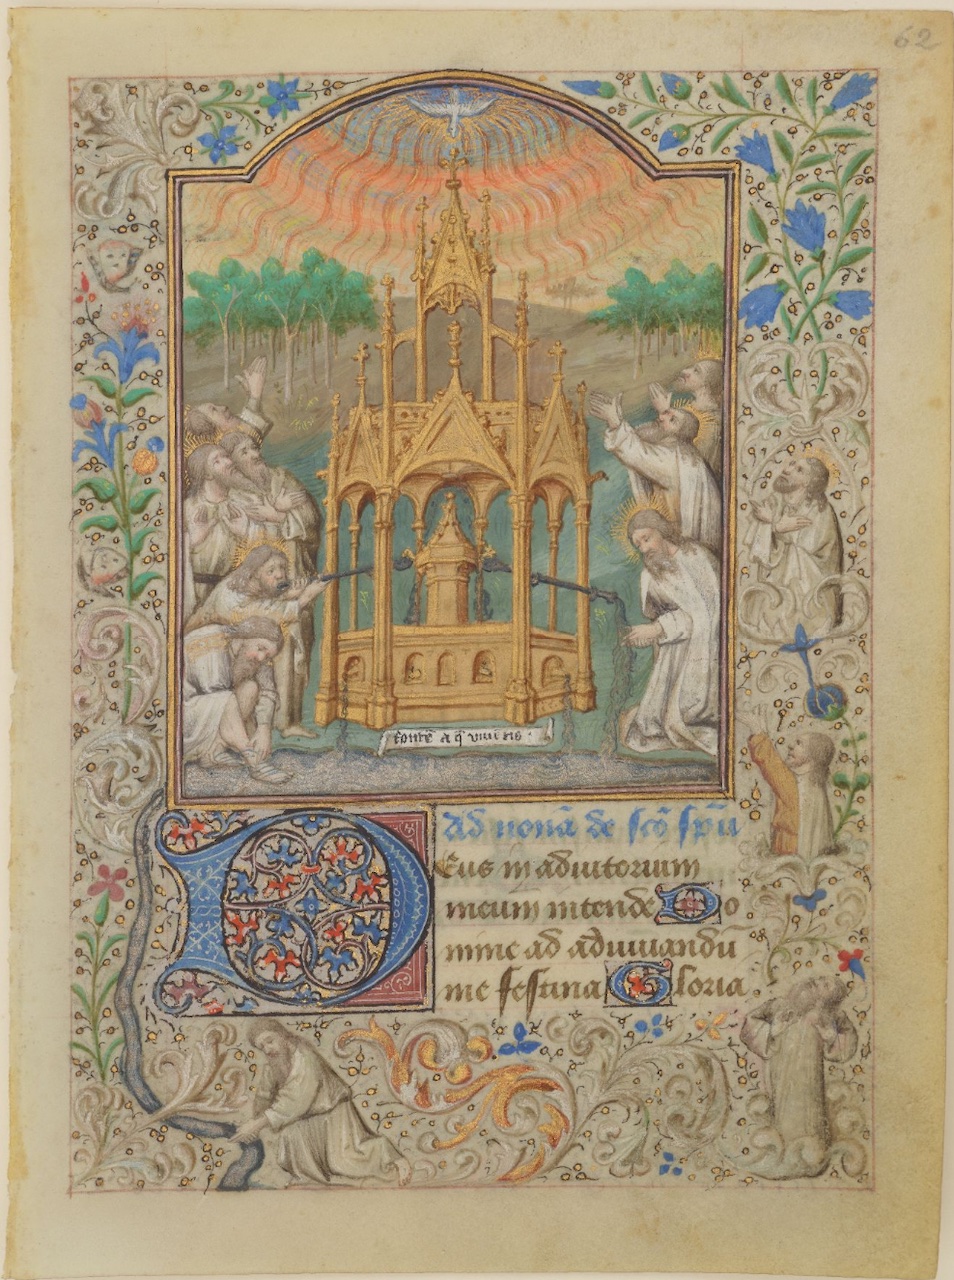 62
fontē aq̄ viuētis
Ad nonā de sc̄o sp̄u
Deus in adiutorium
meum intende Do
mine ad adiuuandū
me festina Gloria